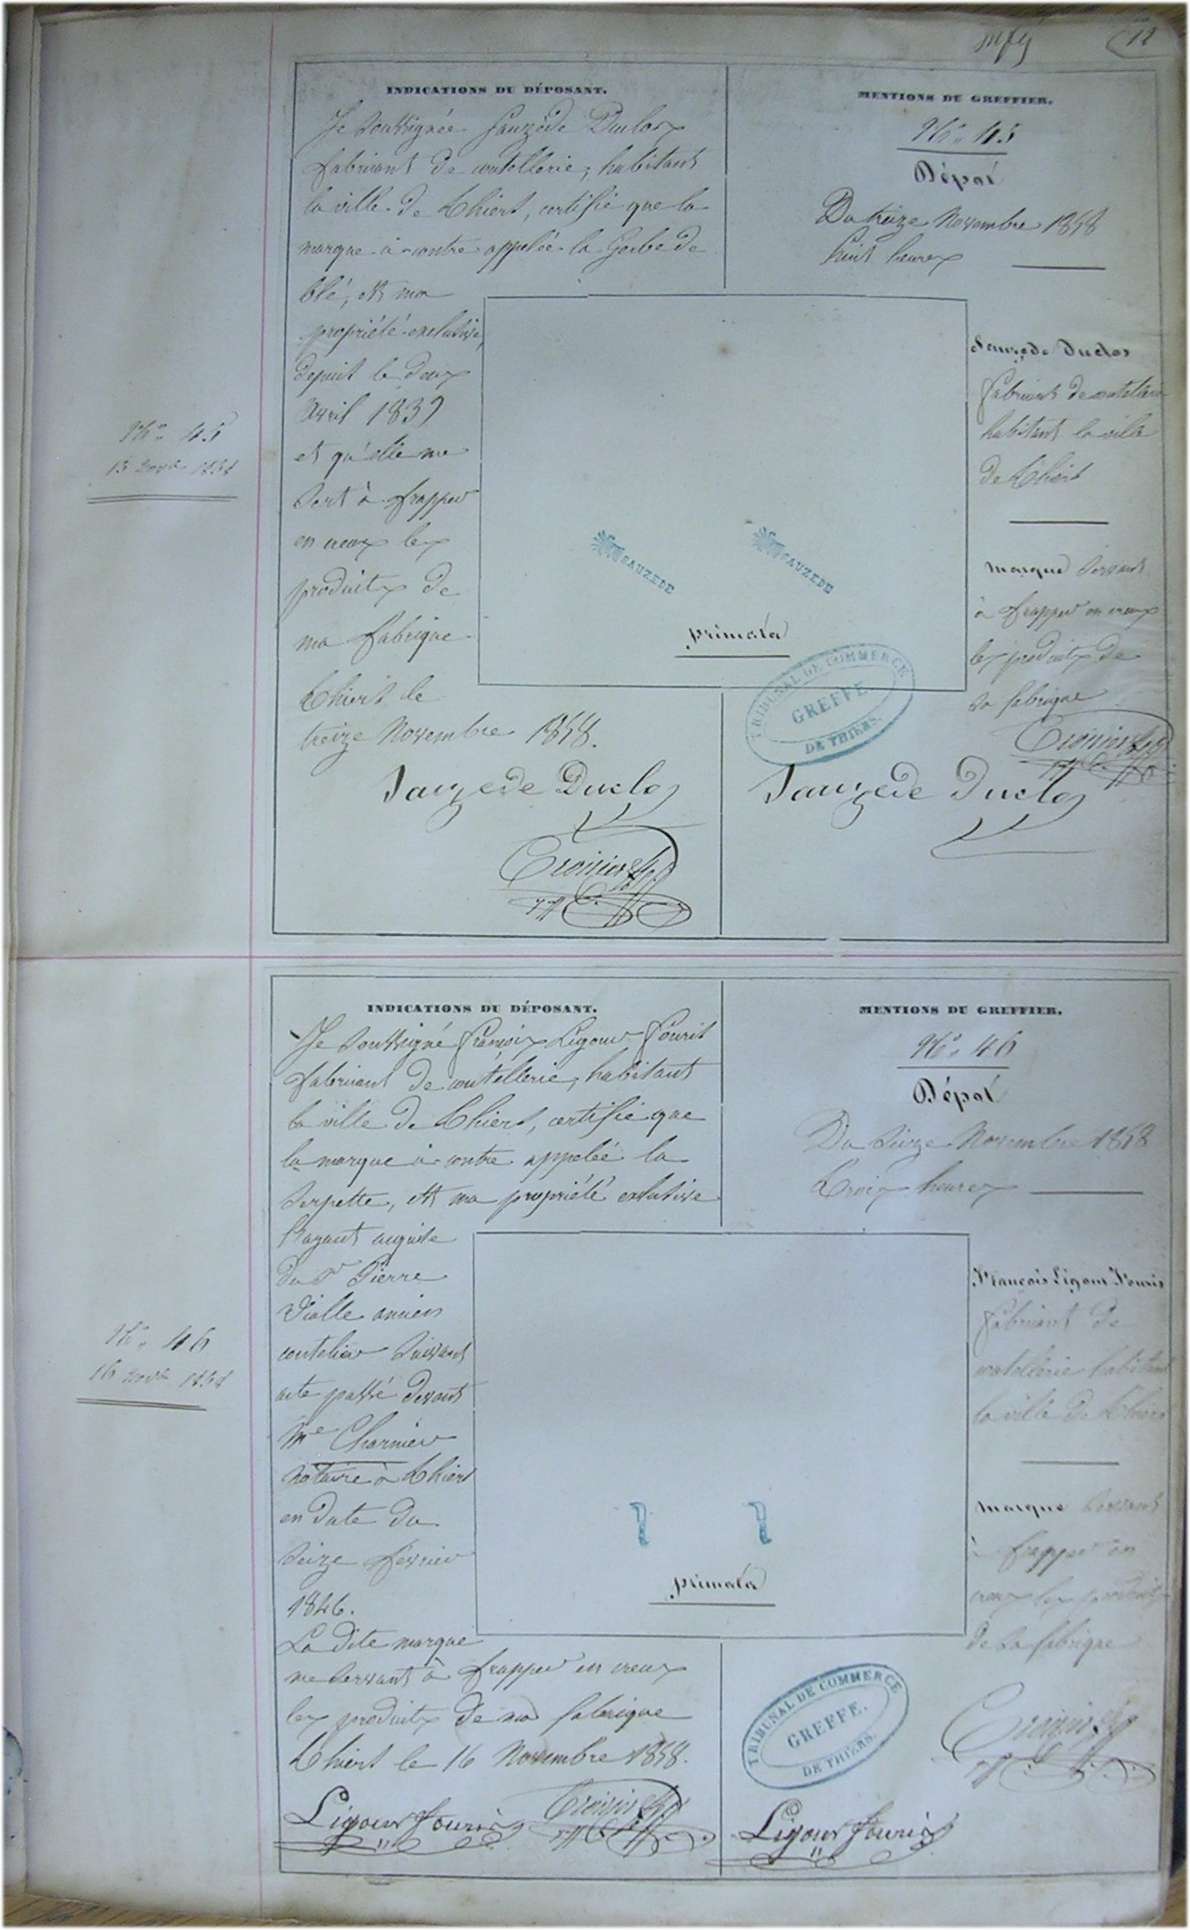 12
INDICATIONS DU DÉPOSANT.
Je soussignée Sauzède Duclos
fabricant de coutellerie, habitant
la ville de Thiers, certifie que la
marque à contre appelée la Gerbe de
blé, est ma
propriété exclusive,
depuis le deux
Avril 1839
et qu'elle me
sert à frapper
en creux les
produits de
ma fabrique
Thiers le
treize Novembre 1858.
Sauzede Duclos
MENTIONS DU GREFFIER.
No. 45
Dépôt
Du treize Novembre 1858
huit heures
Sauzede Duclos
fabricant de coutellerie
habitant la ville
de Thiers
marque servant
à frapper en creux
les produits de
sa fabrique
Sauzede Duclos
SAUZEDE
SAUZEDE
primata
TRIBUNAL DE COMMERCE
GREFFE.
DE THIERS.
No. 45
13 novb 1858
INDICATIONS DU DÉPOSANT.
Je soussigné François Ligour Fouris
fabricant de coutellerie, habitant
la ville de Thiers, certifie que
la marque à contre appelée la
serpette, est ma propriété exclusive
l'ayant acquise
du Sr Pierre
Vialle ancien
coutelier suivant
acte passé devant
Me Charnier
notaire à Thiers
en date du
seize février
1846.
La dite marque
me servant à frapper en creux
les produits de ma fabrique
Thiers le 16 Novembre 1858.
Ligour fouris
MENTIONS DU GREFFIER.
No. 46
Dépôt
Du seize Novembre 1858
trois heures
François Ligour Fouris
fabricant de
coutellerie habitant
la ville de Thiers
marque servant
à frapper en
creux les produits
de sa fabrique
Ligour fouris
primata
TRIBUNAL DE COMMERCE
GREFFE.
DE THIERS.
No. 46
16 novb 1858